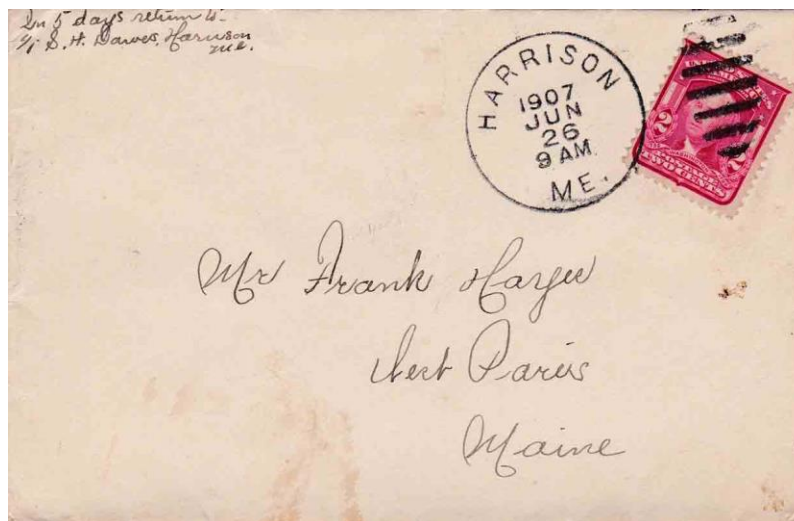 In 5 days return to
S. H. Dawes, Harrison
Me.
HARRISON
1907
JUN
26
9 AM
ME.
2 2
TWO CENTS
Mr Frank Hayes
West Paris
Maine